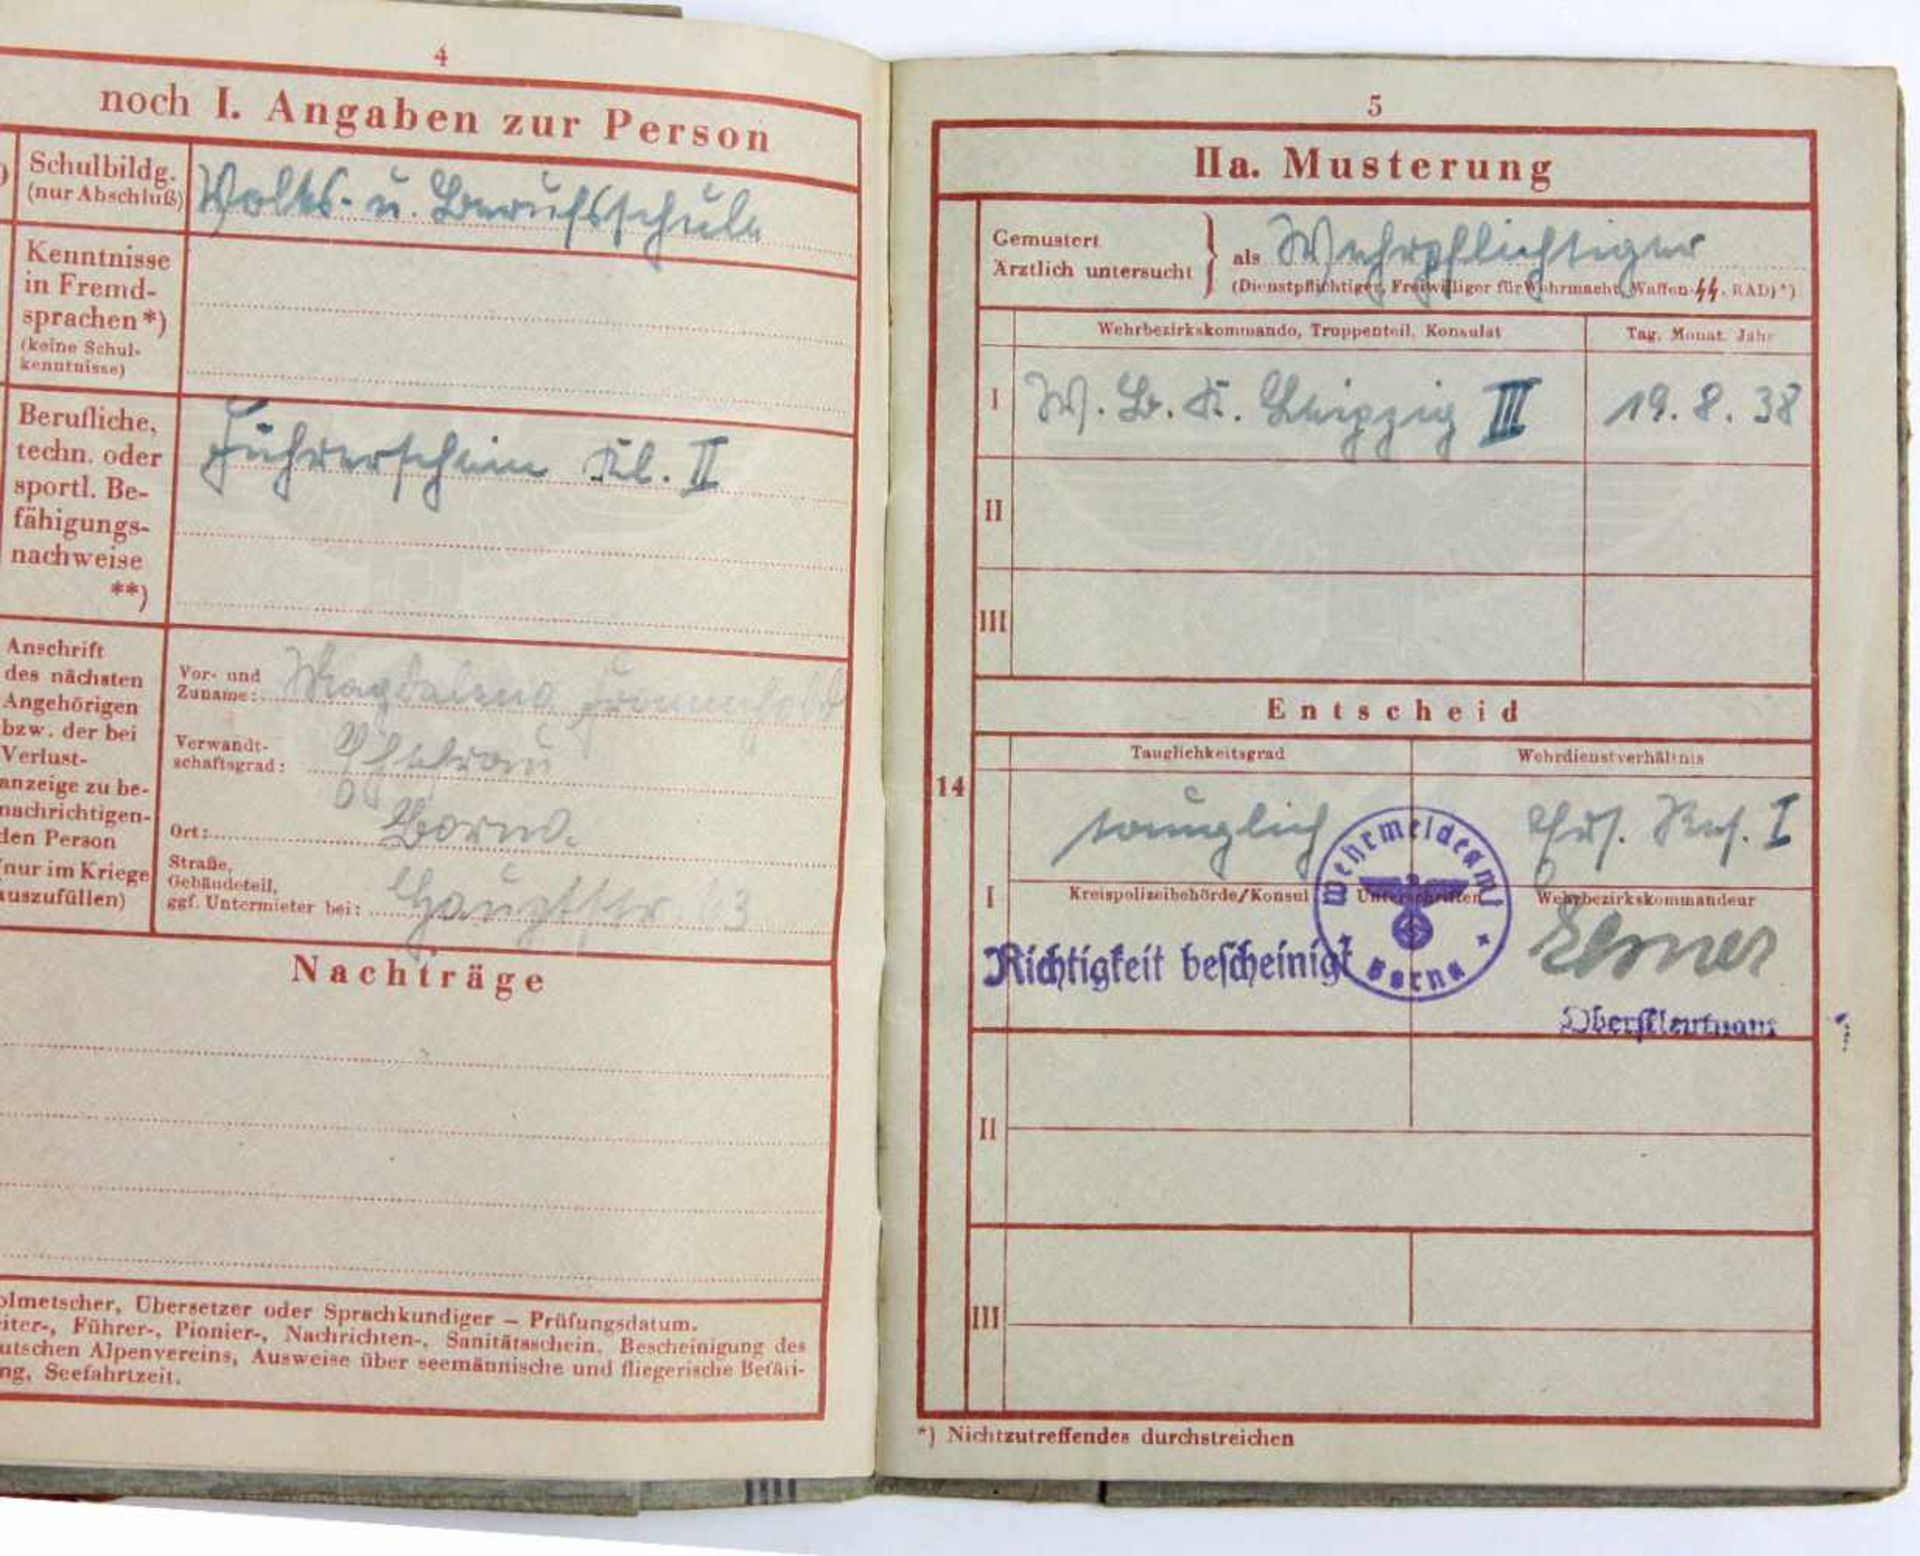 4
noch I. Angaben zur Person
Schulbildg.
(nur Abschluß)
Volks- u. Berufsschule
Kenntnisse
in Fremd-
sprachen*)
(keine Schul-
kenntnisse)
Berufliche,
techn. oder
sportl. Be-
fähigungs-
nachweise
**)
Führerschein Kl. II
Anschrift
des nächsten
Angehörigen
bzw. der bei
Verlust-
anzeige zu be-
nachrichtigen-
den Person
(nur im Kriege
auszufüllen)
Vor- und
Zuname: Magdalena
Verwandt-
schaftsgrad: Ehefrau
Ort: Borna
Straße,
Gebäudeteil,
ggf. Untermieter bei: Hauptstr 3
Nachträge
olmetscher, Übersetzer oder Sprachkundiger – Prüfungsdatum.
eiter-, Führer-, Pionier-, Nachrichten-, Sanitätsschein, Bescheinigung des
utschen Alpenvereins, Ausweise über seemännische und fliegerische Befähi-
ng, Seefahrtzeit.
5
IIa. Musterung
Gemustert
Ärztlich untersucht } als Wehrpflichtiger
(Dienstpflichtiger, Freiwilliger für Wehrmacht, Waffen-SS, RAD)*)
Wehrbezirkskommando, Truppenteil, Konsulat
Tag, Monat, Jahr
I W. B. K. Leipzig III 19. 8. 38
II
III
Entscheid
14
Tauglichkeitsgrad
Wehrdienstverhältnis
tauglich
Ers. Res. I
I
Kreispolizeibehörde/Konsul
Unterschriften
Wehrbezirkskommandeur
Wehrmeldeamt
Borna
Richtigkeit bescheinigt
Oberstleutnant
II
III
*) Nichtzutreffendes durchstreichen